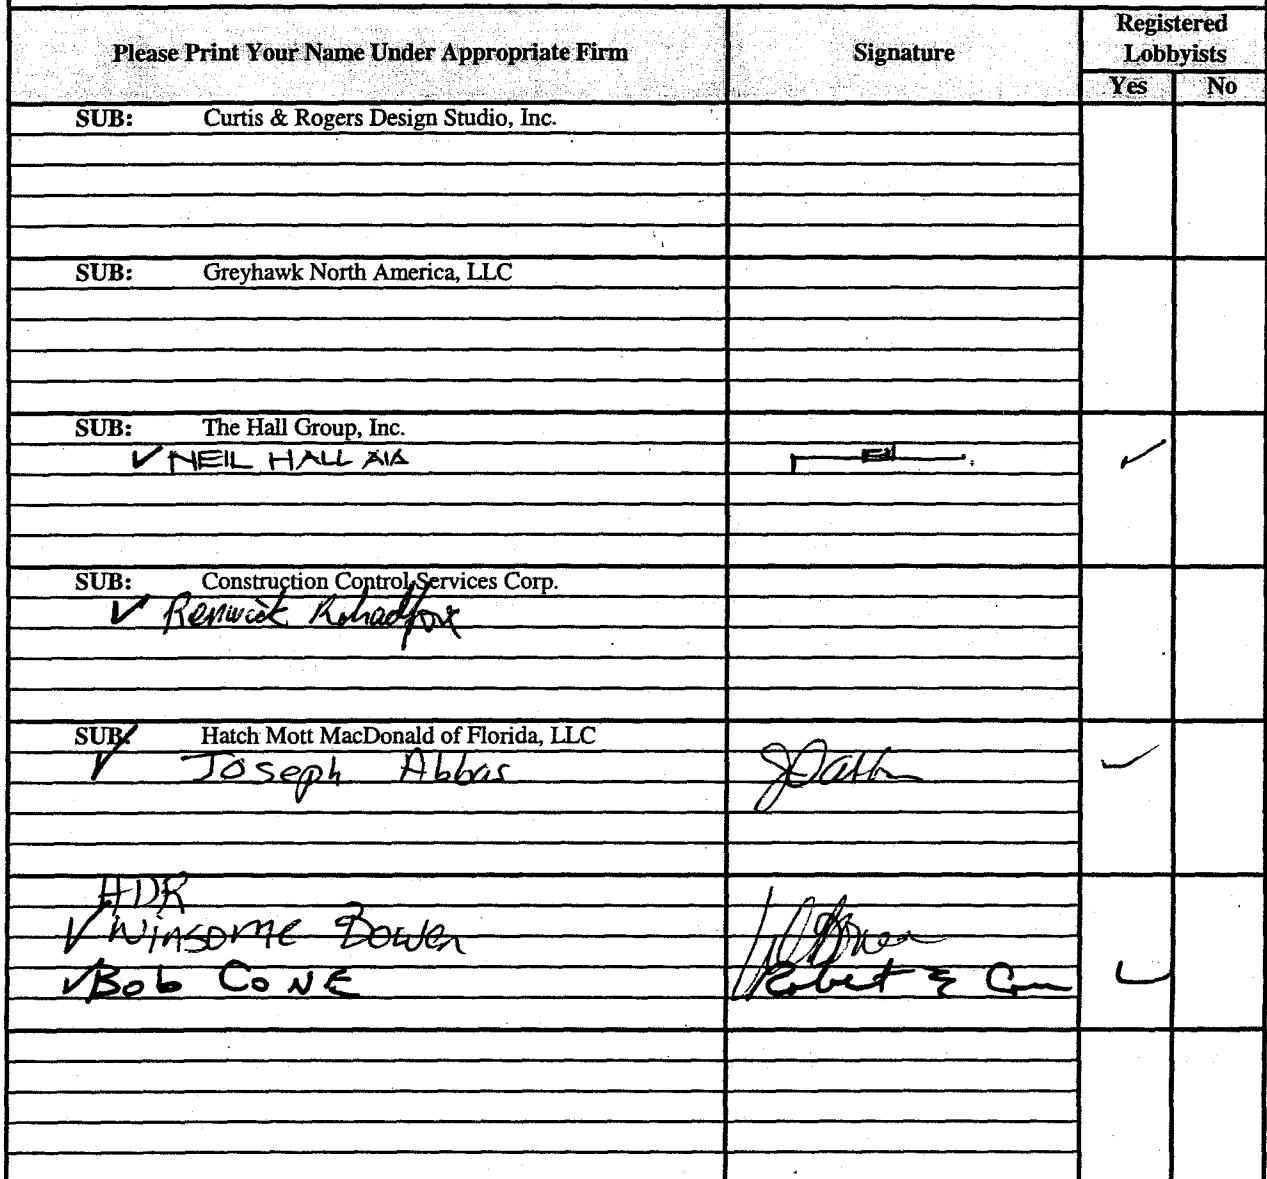 Please Print Your Name Under Appropriate Firm Signature Registered Lobbyists
Yes No
SUB: Curtis & Rogers Design Studio, Inc.
SUB: Greyhawk North America, LLC
SUB: The Hall Group, Inc.
✓ NEIL HALL AIA ✓
SUB: Construction Control Services Corp.
✓ Renwick
SUB: Hatch Mott MacDonald of Florida, LLC
✓ Joseph Abbas ✓
HDR
✓ Winsome Bowen
✓ Bob CONE Robert E Cone ✓